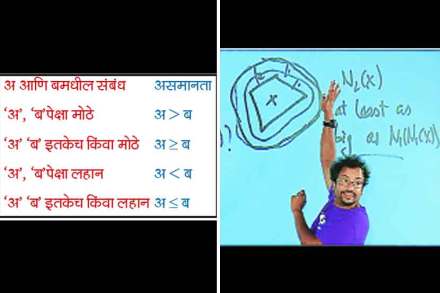 अ आणि बमधील संबंध असमानता
‘अ’, ‘ब’पेक्षा मोठे अ > ब
‘अ’ ‘ब’ इतकेच किंवा मोठे अ ≥ ब
‘अ’, ‘ब’पेक्षा लहान अ < ब
‘अ’ ‘ब’ इतकेच किंवा लहान अ ≤ ब
x
N₂(x)
at least as
big as N₁(N₁(x))